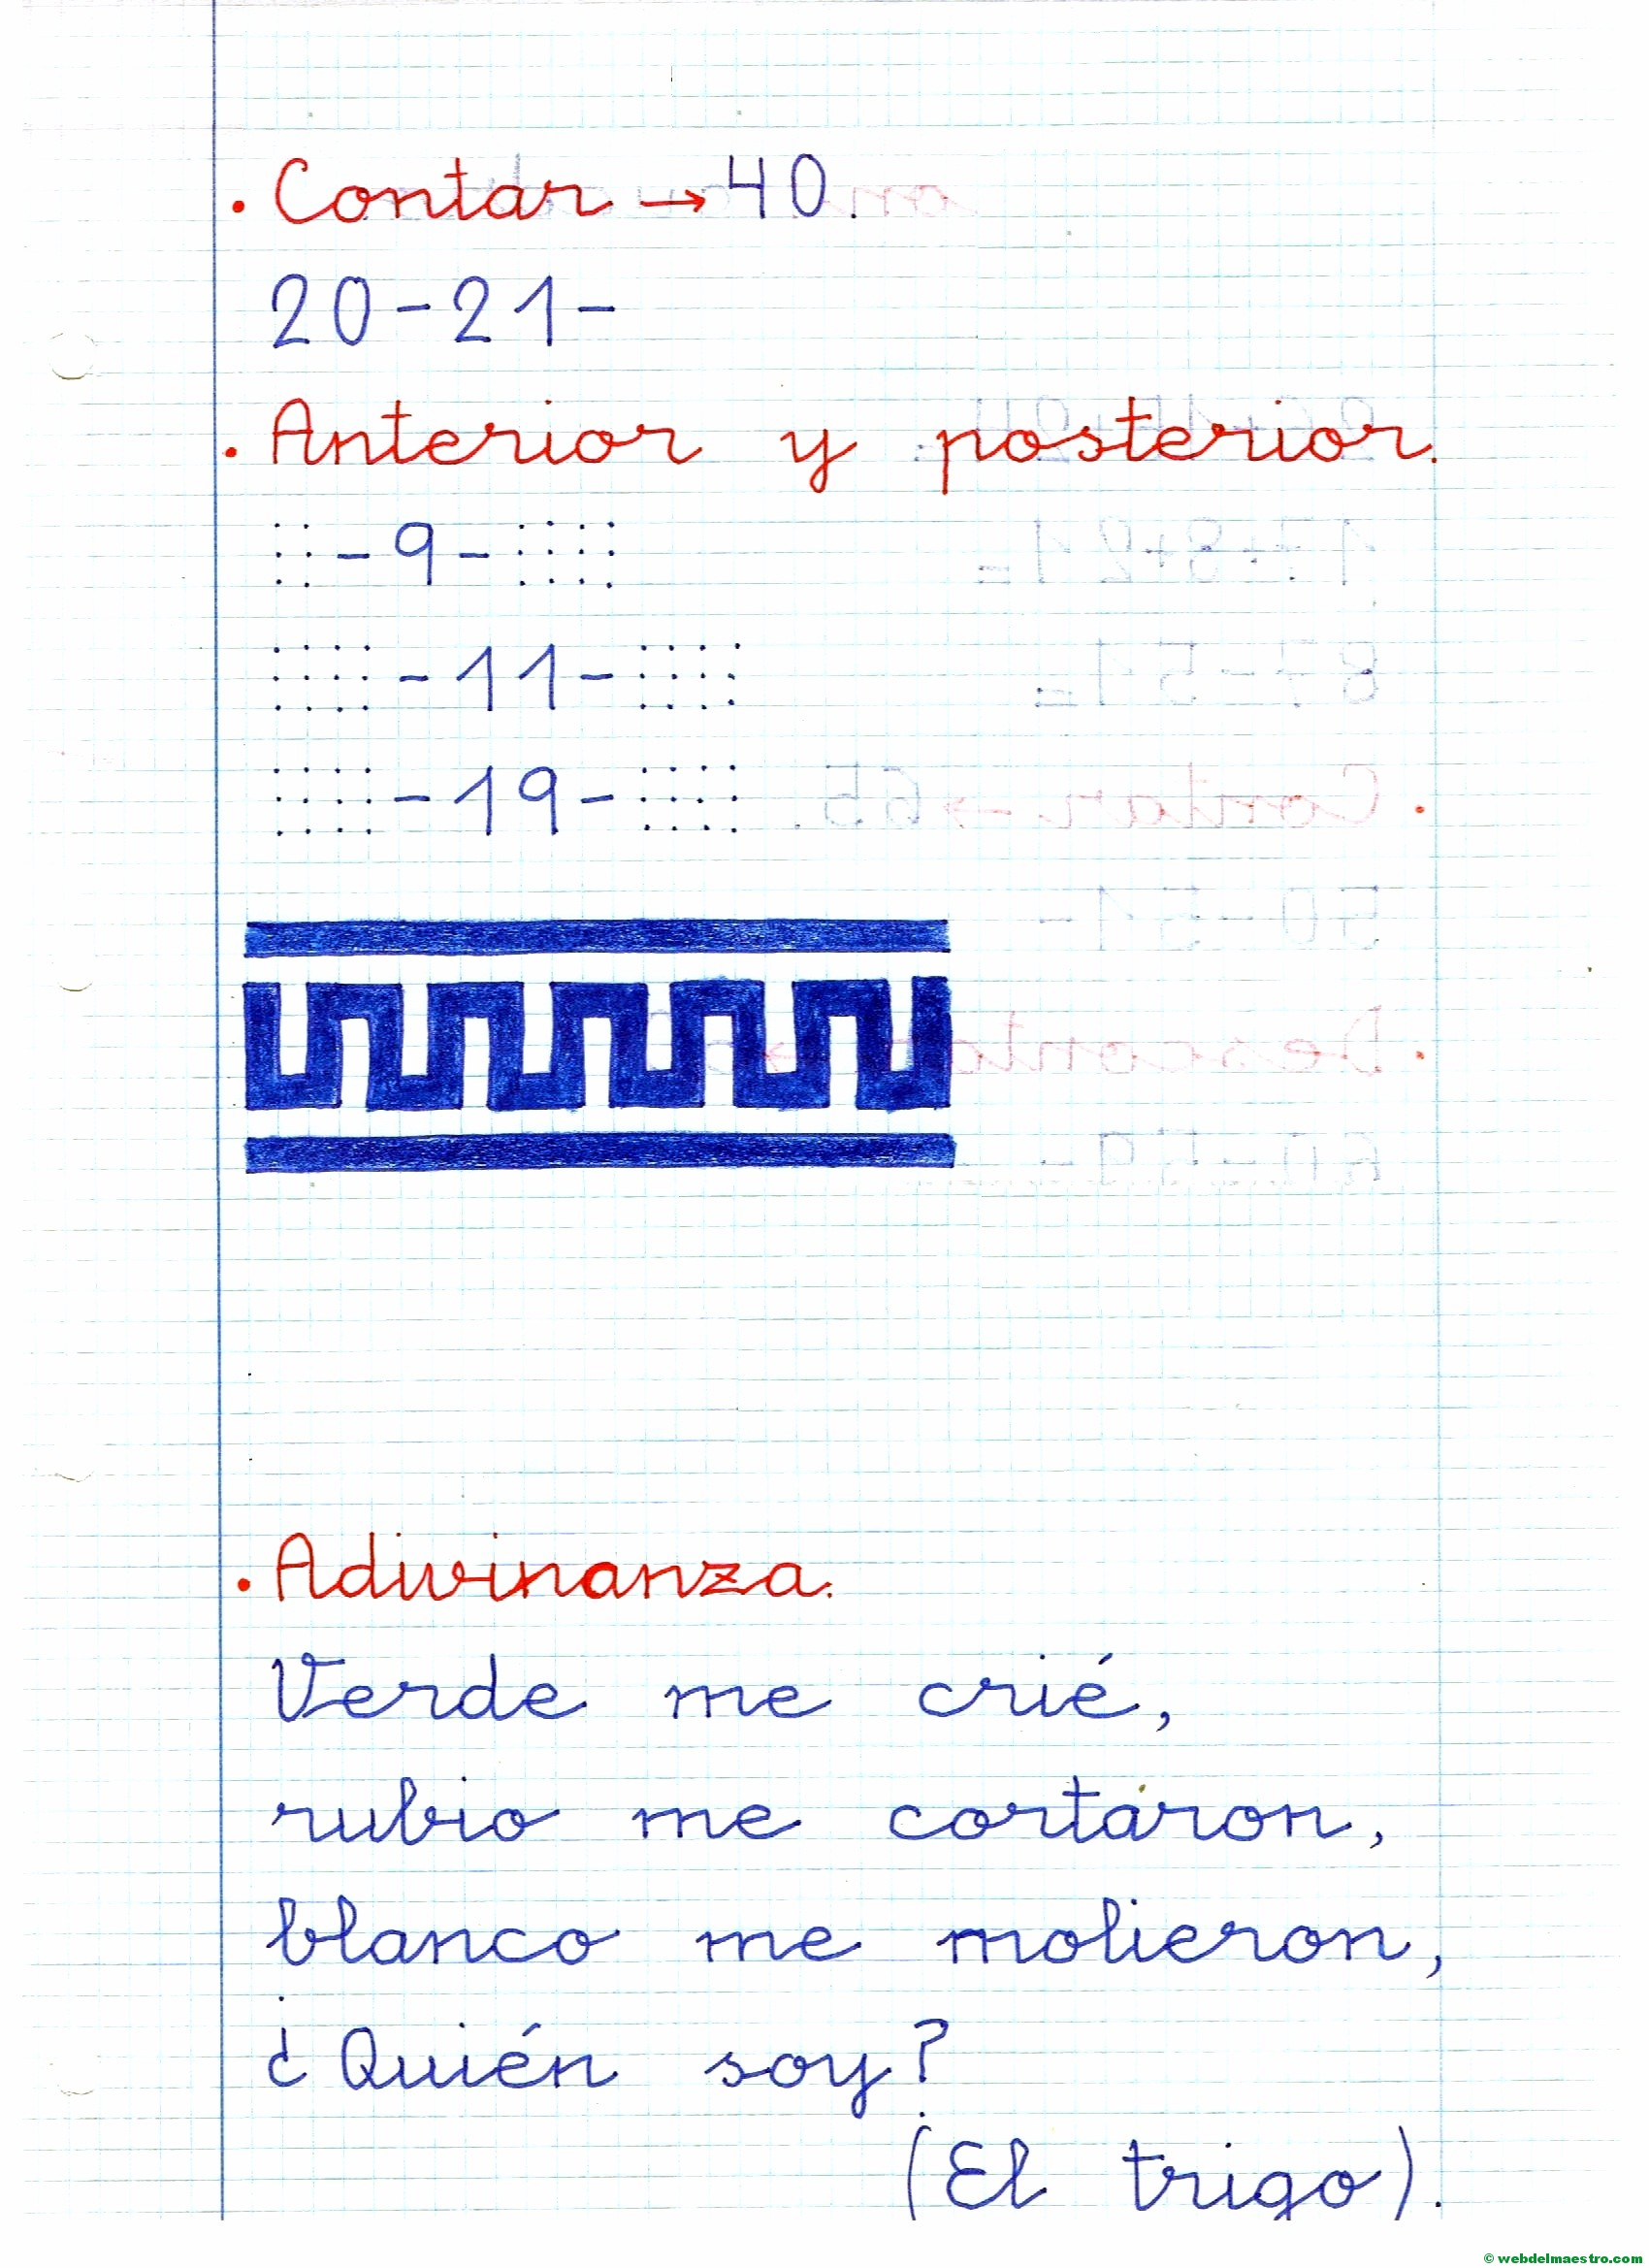 . Contar → 40.
20-21-
. Anterior y posterior.
-9-
-11-
-19-
. Adivinanza.
Verde me crié,
rubio me cortaron,
blanco me molieron,
¿Quién soy?
(El trigo).
© webdelmaestro.com